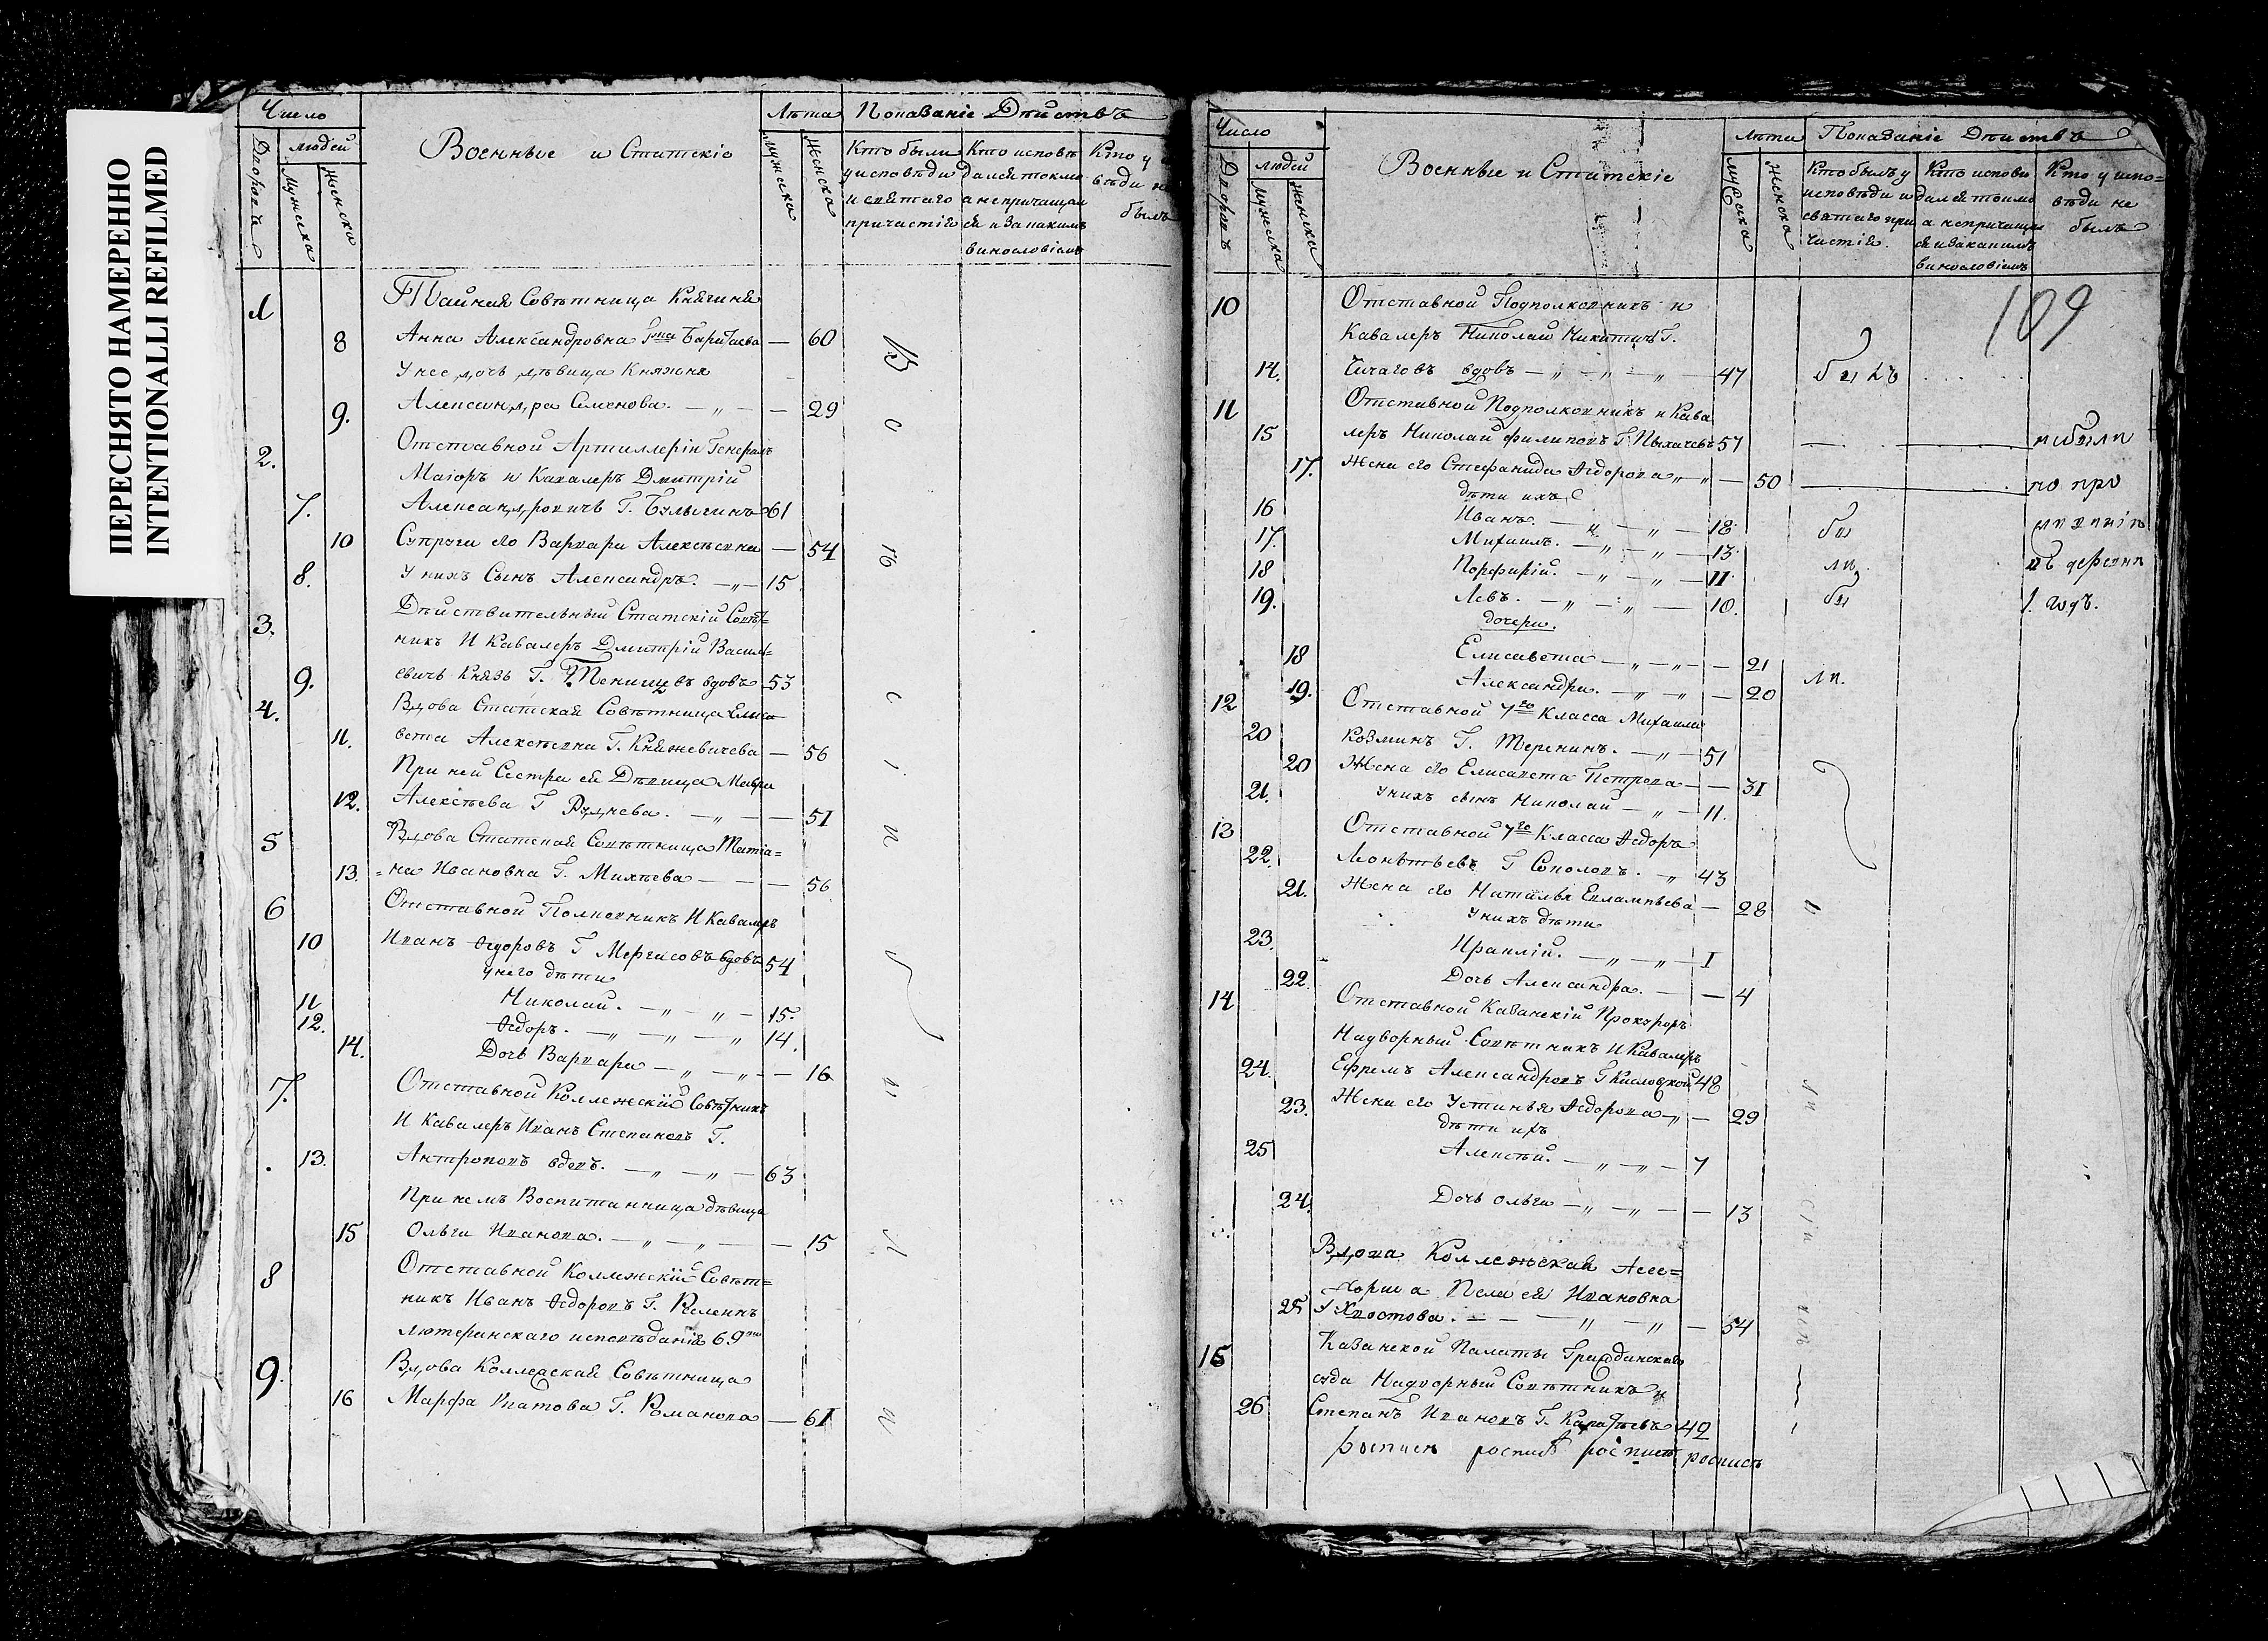 ПЕРЕСНЯТО НАМЕРЕННО
INTENTIONALLI REFILMED
Число
Лѣта Показаніе Дѣйствъ
Дворовъ
людей
Мужеска
Женска
Военные и Статскіе
Мужеска
Женска
Кто были
у исповѣди
и святаго
причастія
Кто исповѣ
дался токмо
а не причащал
ся и за какимъ
винословіемъ
Кто у
вѣди не
былъ
1
Тайная Совѣтница Княгиня
8 Анна Александровна Г.жа Баратаева — 60
У нее дочь дѣвица Княжна
9. Александра Семенова. — „ — — 29
2. Отставной Артиллеріи Генералъ
Маіоръ и Кавалеръ Дмитрій
7. Александровичъ Г. Булыгинъ 61
10 Супруга его Варвара Алексѣевна — 54
8. У нихъ Сынъ Александръ. — „ — 15
3. Дѣйствительный Статскій Совѣт=
никъ И Кавалеръ Дмитрій Василь=
9. евичъ Князь Г. Тенишевъ вдовъ 53
4. Вдова Статская Совѣтница Елиса
11. вета Алексѣевна Г. Княжевичева — 56
При ней Сестра ея Дѣвица Мавра
12. Алексѣева Г Руднева. — „ — — 51
5 Вдова Статская Совѣтница Татіа=
13. =на Ивановна Г. Михѣева — — — 56
6 Отставной Полковникъ И Кавалеръ
10 Иванъ Ѳедоровъ Г Мергасовъ вдовъ 54
у него дѣти
11 Николай. — „ — „ — 15.
12. Ѳедоръ. — „ — „ — „ 14.
14. Дочь Варвара — „ — „ — — 16
7. Отставной Коллежскій Совѣтникъ
И Кавалеръ Иванъ Степановъ Г.
13. Антроповъ вдовъ. — „ — „ — 63
При немъ Воспитанница дѣвица
15 Ольга Иванова. — „ — „ — — 15
8 Отставной Коллежскій Совѣт=
никъ Иванъ Ѳедоровъ Г.
лютеранскаго исповѣданія 69
9. Вдова Коллежская Совѣтница
16 Марфа Г. Романова — 61
Число
Лѣта Показаніе Дѣйствъ
Дворовъ
людей
Мужеска
Женска
Военные и Статскіе
Мужеска
Женска
Кто былъ у
исповѣди и
святаго при
частія.
Кто исповѣ
дался токмо
а не причащал
ся и за какимъ
винословіемъ
Кто у испо=
вѣди не
былъ
109
10 Отставной Подполковникъ и
Кавалеръ Николай Никитичъ Г.
14. Чичаговъ вдовъ — „ — „ — „ — 47 былъ
11 Отставной Подполковникъ и Кава
15 леръ Николай Филиповъ Г. Пыхачевъ 57 — — небыли
17. Жена его Стефанида Ѳедорова „ „ — 50 — по про
дѣти ихъ
16 Иванъ. — „ — „ — 18 бы
17. Михаилъ. — „ — „ — 13 ли
18 Порфирій. — „ — „ — 11 въ деревнѣ
19. Левъ. — „ — „ — 10. бы 1. годъ.
дочери.
18 Елисавета — „ — „ — — 21 ли.
19. Александра. — „ — „ — 20
12 Отставной 7го Класса Михаила
20 Козминъ Г. Теренинъ. — „ — 51
20 Жена его Елисавета Петрова — — 31
21. У нихъ сынъ Николай — „ — 11.
13 Отставной 7го Класса Ѳедоръ
22. Леонтьевъ Г Соколовъ. — „ 43
21. Жена его Наталья Евлампьева — 28
У нихъ дѣти
23. Ираклій. — „ — „ — 1
22. Дочь Александра. — — 4
14 Отставной Казанскій Прокуроръ
Надворный Совѣтникъ И Кавалеръ
24. Ефремъ Александровъ Г Кисловской 48
23. Жена его Устинья Ѳедорова „ — 29
дѣти ихъ
25 Алексѣй. — „ — „ — 7
24. Дочь Ольга — „ — „ — — 13
Вдова Коллежская Ассе=
Пелагея Ивановна
25 Г Хвостова. — — — „ — „ — 54
15 Казанской Палаты Гражданскаго
суда Надворный Совѣтникъ
26 Степанъ Ивановъ Г. 42
роспись роспись роспись роспись